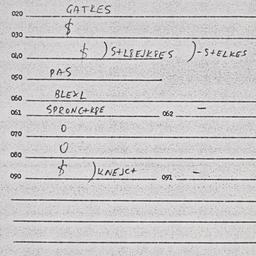 020 GATKES
030 $
040 $ ) S+LIEJKSES ) - S+ELKES
050 PAS
060 BLEXL
061 SPRONG+KJE 062 -
070 0
080 0
090 $ ) KNEJC+ 091 -